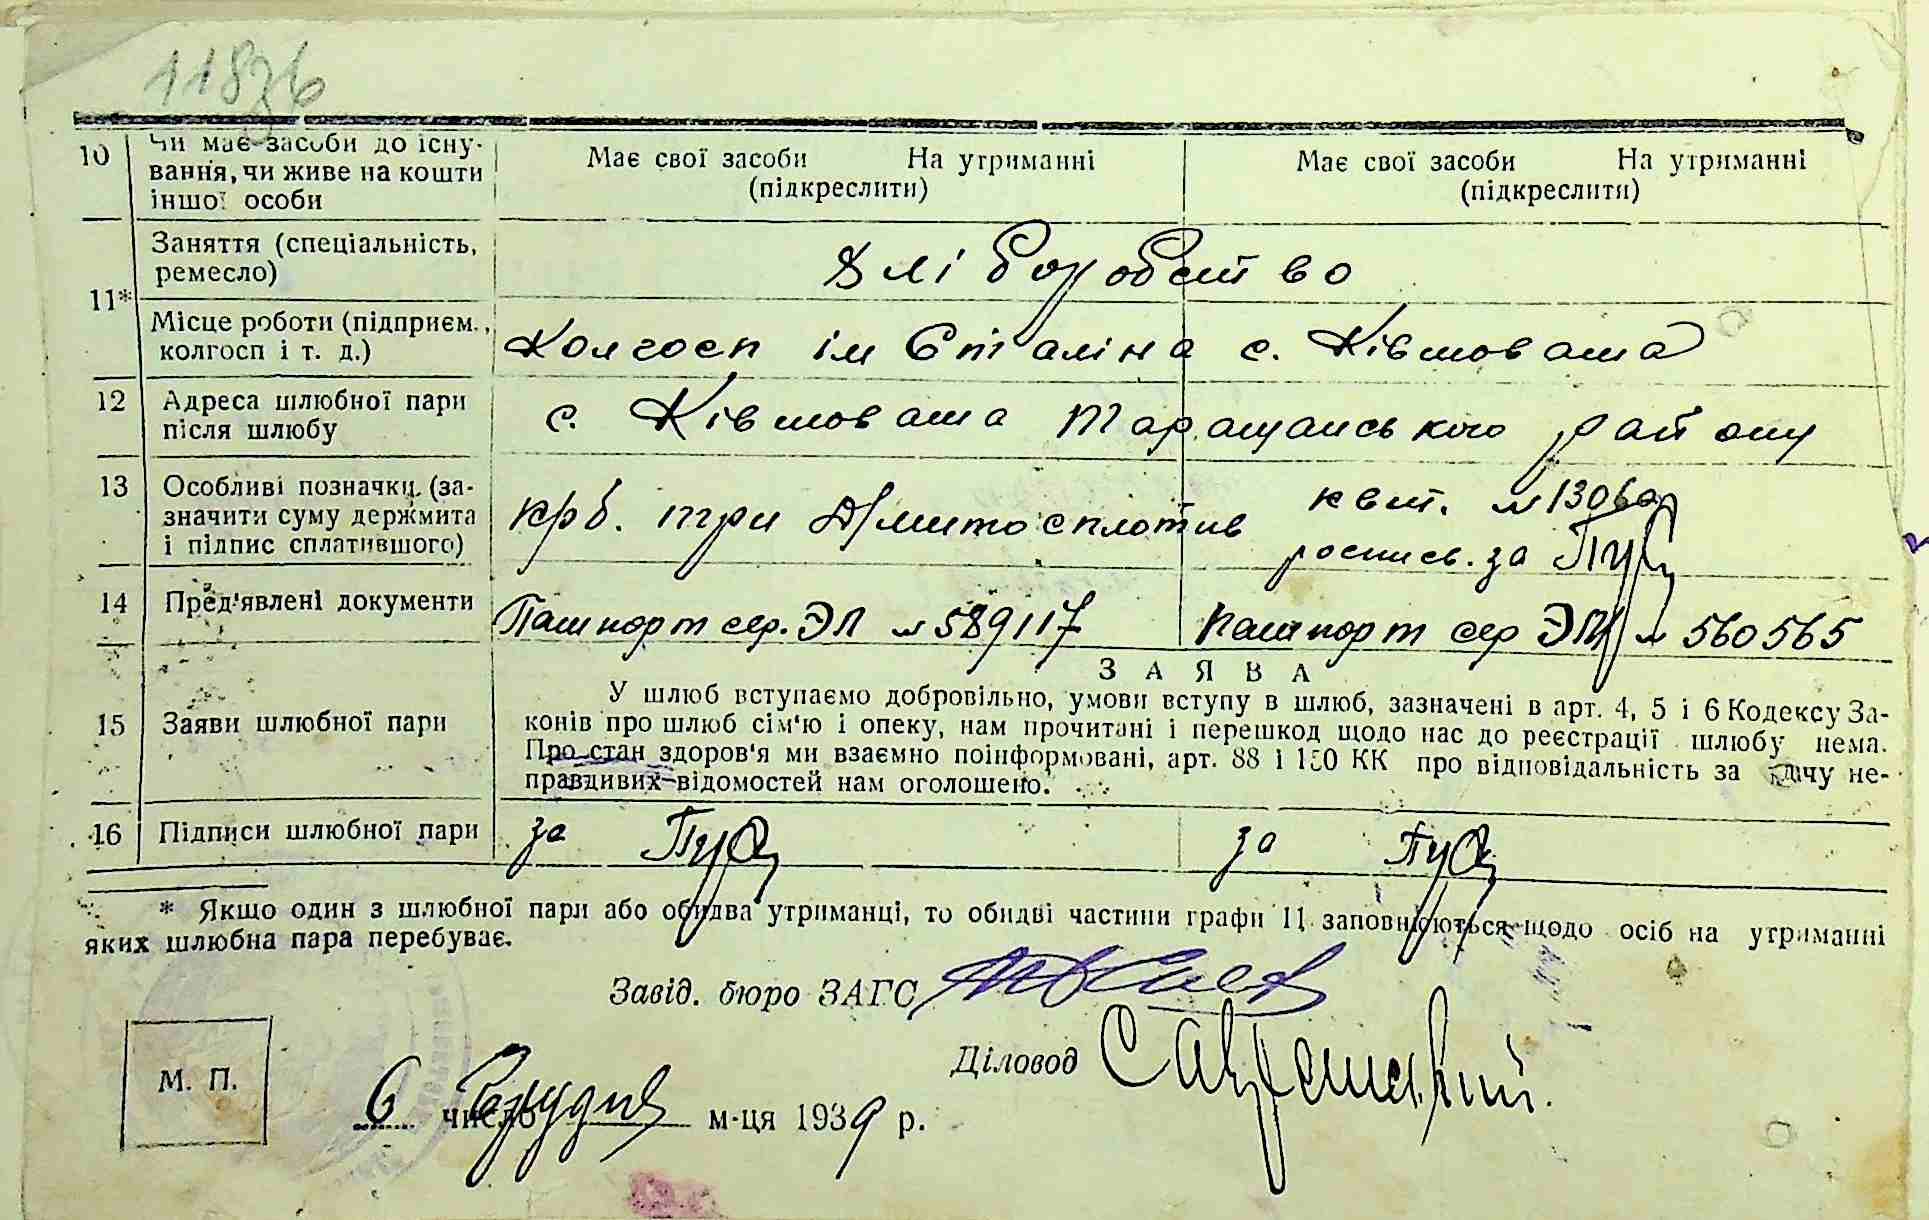 11836
10 Чи має засоби до існування, чи живе на кошти іншої особи
Має свої засоби На утриманні (підкреслити)
Має свої засоби На утриманні (підкреслити)
11*
Заняття (спеціальність, ремесло)
хліборобство
Місце роботи (підприєм., колгосп і т. д.)
Колгосп ім Сталіна с. Ківшовата
12 Адреса шлюбної пари після шлюбу
с. Ківшовата Таращанського району
13 Особливі позначки (зазначити суму держмита і підпис сплатившого)
крб. три
квит. № 13060
роспис. за
14 Пред'явлені документи
Пашпорт сер. ЭЛ № 589117
Пашпорт сер № 560565
ЗАЯВА
15 Заяви шлюбної пари
У шлюб вступаємо добровільно, умови вступу в шлюб, зазначені в арт. 4, 5 і 6 Кодексу За-
конів про шлюб сім'ю і опеку, нам прочитані і перешкод щодо нас до реєстрації шлюбу нема.
Про стан здоров'я ми взаємно поінформовані, арт. 88 і КК про відповідальність за дачу не-
правдивих відомостей нам оголошено.
16 Підписи шлюбної пари
за
за
* Якщо один з шлюбної пари або обидва утриманці, то обидві частини графи 11 заповнюються щодо осіб на утриманні
яких шлюбна пара перебуває.
Завід. бюро ЗАГС
Діловод
М. П.
6 число Грудня м-ця 1939 р.